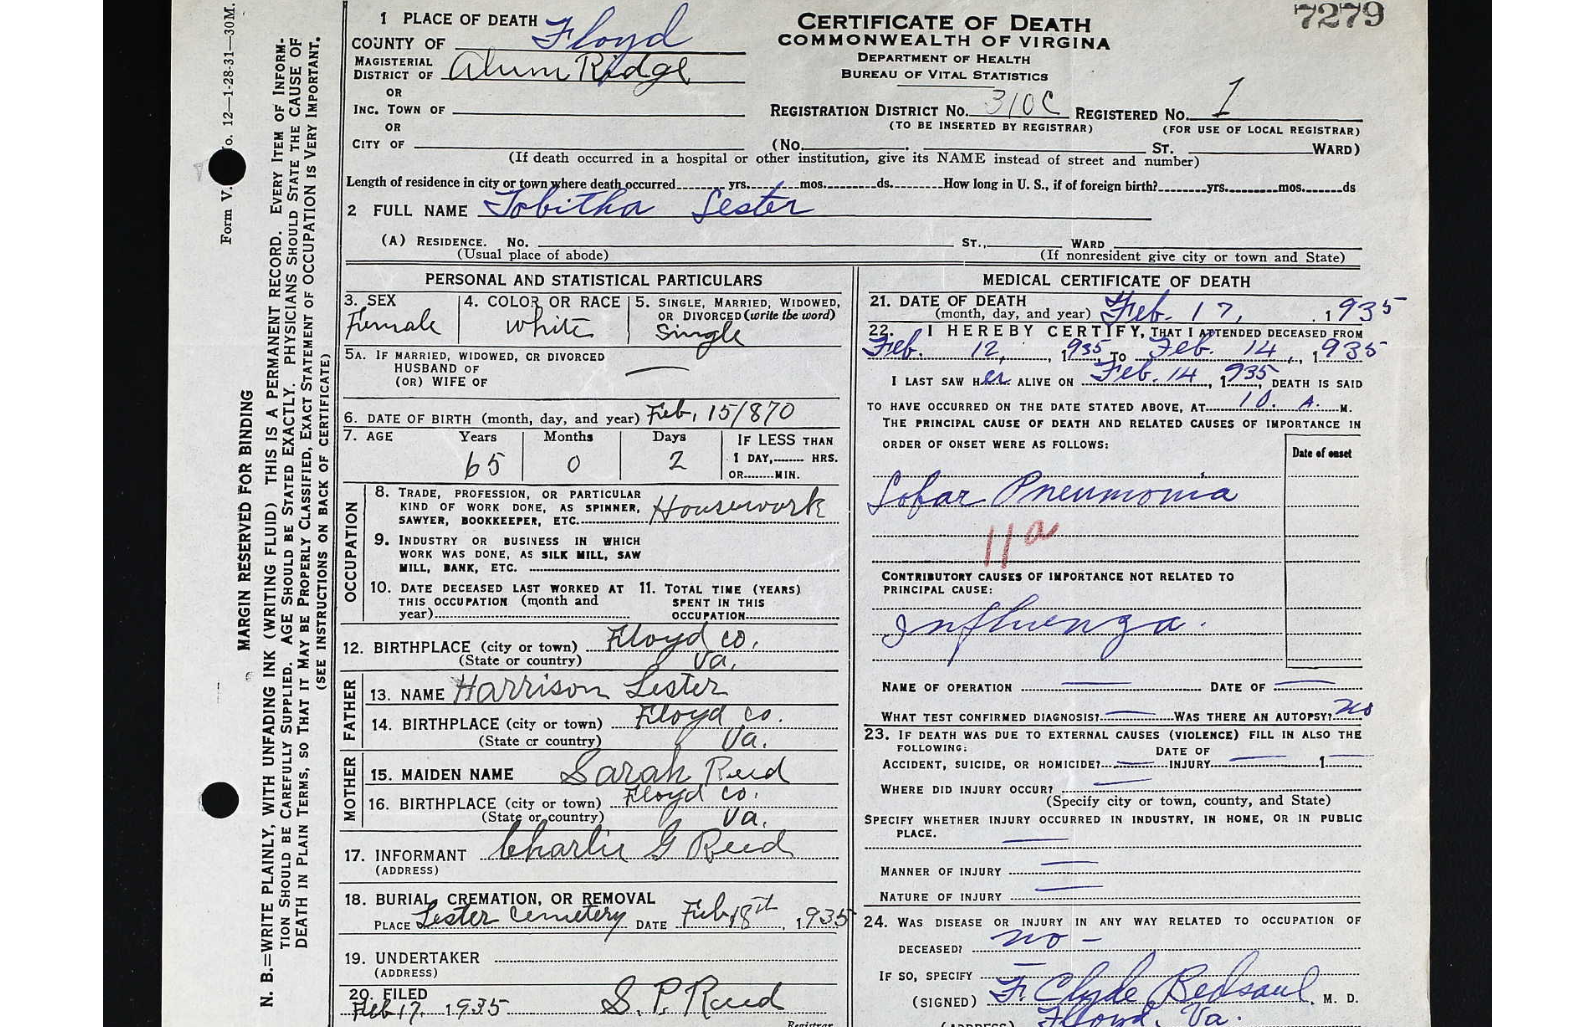 7279
1 PLACE OF DEATH
COUNTY OF Floyd
MAGISTERIAL DISTRICT OF Alum Ridge
OR
INC. TOWN OF
OR
CITY OF
CERTIFICATE OF DEATH
COMMONWEALTH OF VIRGINIA
DEPARTMENT OF HEALTH
BUREAU OF VITAL STATISTICS
REGISTRATION DISTRICT No. 310C REGISTERED No. 1
(TO BE INSERTED BY REGISTRAR) (FOR USE OF LOCAL REGISTRAR)
(No. ST. WARD)
(If death occurred in a hospital or other institution, give its NAME instead of street and number)
Length of residence in city or town where death occurred yrs. mos. ds. How long in U. S., if of foreign birth? yrs. mos. ds
2 FULL NAME Tobitha Lester
(A) RESIDENCE. No. ST., WARD
(Usual place of abode) (If nonresident give city or town and State)
PERSONAL AND STATISTICAL PARTICULARS
3. SEX Female
4. COLOR OR RACE white
5. SINGLE, MARRIED, WIDOWED, OR DIVORCED (write the word) Single
5A. IF MARRIED, WIDOWED, OR DIVORCED
HUSBAND OF
(OR) WIFE OF
6. DATE OF BIRTH (month, day, and year) Feb, 15/870
7. AGE Years Months Days IF LESS THAN
65 0 2 1 DAY, HRS.
OR MIN.
OCCUPATION
8. TRADE, PROFESSION, OR PARTICULAR
KIND OF WORK DONE, AS SPINNER, Housework
SAWYER, BOOKKEEPER, ETC.
9. INDUSTRY OR BUSINESS IN WHICH
WORK WAS DONE, AS SILK MILL, SAW
MILL, BANK, ETC.
10. DATE DECEASED LAST WORKED AT THIS OCCUPATION (month and year)
11. TOTAL TIME (YEARS) SPENT IN THIS OCCUPATION
12. BIRTHPLACE (city or town) Floyd co.
(State or country) Va.
FATHER
13. NAME Harrison Lester
14. BIRTHPLACE (city or town) Floyd co.
(State or country) Va.
MOTHER
15. MAIDEN NAME Sarah Reed
16. BIRTHPLACE (city or town) Floyd co.
(State or country) Va.
17. INFORMANT Charlie G Reed
(ADDRESS)
18. BURIAL, CREMATION, OR REMOVAL
PLACE Lester Cemetery DATE Feb 18th, 1935
19. UNDERTAKER
(ADDRESS)
20. FILED
Feb 17, 1935 S. P. Reed
Registrar
MEDICAL CERTIFICATE OF DEATH
21. DATE OF DEATH
(month, day, and year) Feb. 17, 1935
22. I HEREBY CERTIFY, THAT I ATTENDED DECEASED FROM
Feb. 12, 1935 TO Feb. 14, 1935
I LAST SAW Her ALIVE ON Feb. 14, 1935, DEATH IS SAID
TO HAVE OCCURRED ON THE DATE STATED ABOVE, AT 10. A. M.
THE PRINCIPAL CAUSE OF DEATH AND RELATED CAUSES OF IMPORTANCE IN
ORDER OF ONSET WERE AS FOLLOWS:
Date of onset
Lobar Pneumonia
11a
CONTRIBUTORY CAUSES OF IMPORTANCE NOT RELATED TO
PRINCIPAL CAUSE:
Influenza.
NAME OF OPERATION DATE OF
WHAT TEST CONFIRMED DIAGNOSIS? WAS THERE AN AUTOPSY? no
23. IF DEATH WAS DUE TO EXTERNAL CAUSES (VIOLENCE) FILL IN ALSO THE
FOLLOWING:
ACCIDENT, SUICIDE, OR HOMICIDE? DATE OF INJURY 1
WHERE DID INJURY OCCUR?
(Specify city or town, county, and State)
SPECIFY WHETHER INJURY OCCURRED IN INDUSTRY, IN HOME, OR IN PUBLIC
PLACE.
MANNER OF INJURY
NATURE OF INJURY
24. WAS DISEASE OR INJURY IN ANY WAY RELATED TO OCCUPATION OF
DECEASED? no -
IF SO, SPECIFY
(SIGNED) F. Clyde Bedsaul, M. D.
(ADDRESS) Floyd, Va.
Form V. No. 12—1-28-31—30M.
MARGIN RESERVED FOR BINDING
N. B.—WRITE PLAINLY, WITH UNFADING INK (WRITING FLUID) THIS IS A PERMANENT RECORD. EVERY ITEM OF INFORM-
TION SHOULD BE CAREFULLY SUPPLIED. AGE SHOULD BE STATED EXACTLY. PHYSICIANS SHOULD STATE THE CAUSE OF
DEATH IN PLAIN TERMS, SO THAT IT MAY BE PROPERLY CLASSIFIED, EXACT STATEMENT OF OCCUPATION IS VERY IMPORTANT.
(SEE INSTRUCTIONS ON BACK OF CERTIFICATE)